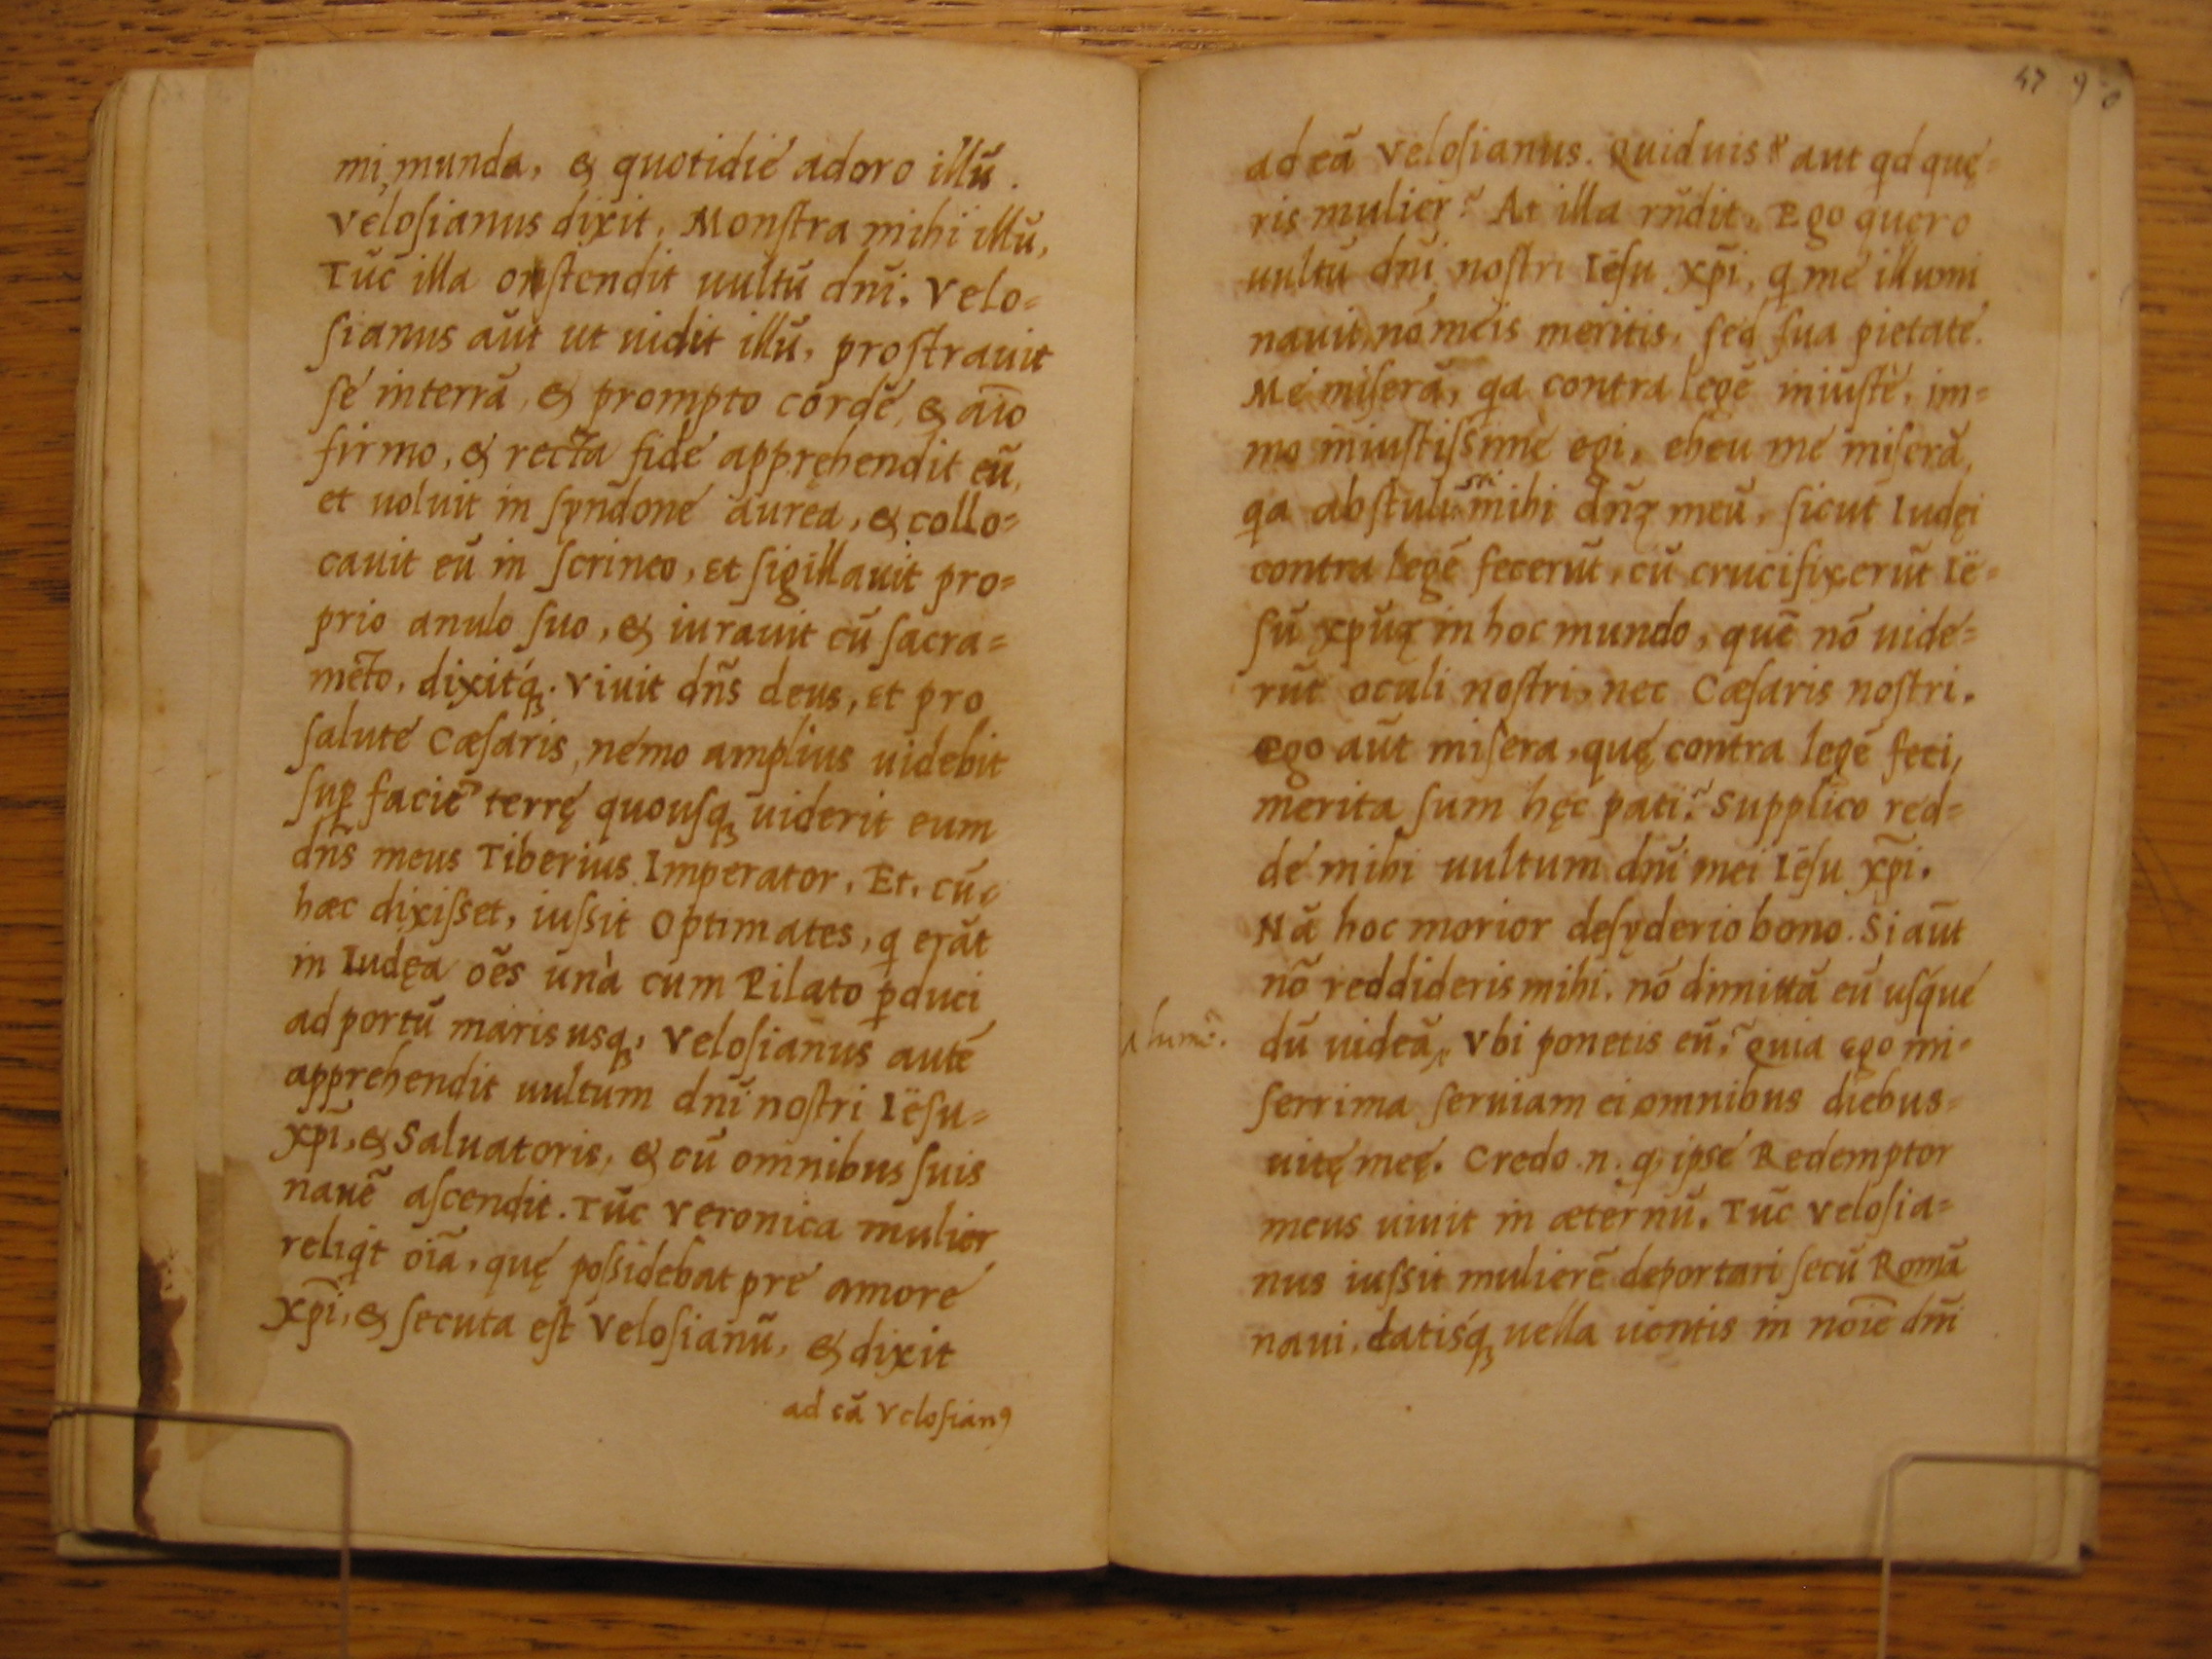 mi munda, & quotidie adoro illū.
Veloſianus dixit, Monſtra mihi illū,
Tūc illa onſtendit uultū dn̄i. Velo=
ſianus aūt ut uidit illū, proſtrauit
ſe interrā, & prompto corde, & aīo
firmo, & recta fide appręhendit eū,
et uoluit in ſyndone aurea, & collo=
cauit eū in ſcrineo, et ſigillauit pro=
prio anulo ſuo, & iurauit cū ſacra=
mēto, dixitq́ꝫ. Viuit dn̄s deus, et pro
ſalute Cæſaris, nemo amplius uidebit
ſuꝑ faciē terrę quouſqꝫ uiderit eum
dn̄s meus Tiberius Imperator. Et, cū
hæc dixiſſet, iuſſit Optimates, q erāt
in Iudęa oēs unà cum Pilato ꝑduci
ad portū maris usqꝫ, Veloſianus autē
apprehendit uultum dn̄i noſtri Iëſu=
xp̄i, & Saluatoris, & cū omnibus ſuis
nauē aſcendit. Tūc Veronica mulier
reliqt oīa, quę poſſidebat pre amore
xp̄i, & ſecuta eſt Veloſianū, & dixit
ad eā Veloſianꝯ
47 9 0
ad eā Veloſianus. Quid uis? aut qd quę=
ris mulier? At illa rn̄dit, Ego quęro
uultū dn̄i noſtri Iëſu xp̄i, q me illumi
nauit, nō meis meritis, ſed ſua pietate.
Me miſerā, qa contra legē iniuſte, im=
mo iniuſtiſſime egi, eheu me miſerā,
qa abſtuliſti mihi dn̄ꝫ meū, ſicut Iudęi
contra legē fecerūt, cū crucifixerūt Ië=
ſū xp̄uꝫ in hoc mundo, quē nō uide=
rūt oculi noſtri, nec Cæſaris noſtri.
Ego aūt miſera, quę contra legē feci,
merita ſum hęc pati? Supplico red=
de mihi uultum dn̄i mei Iëſu xp̄i.
Nā hoc morior deſyderio bono. Si aūt
nō reddideris mihi, nō dimittā eū uſque
dū uideā, Vbi ponetis eū? Quia ego mi=
ſerrima ſeruiam ei omnibus diebus
uitę meę. Credo .n. q ipse Redemptor
meus uiuit in æternū. Tūc Veloſia=
nus iuſſit mulierē deportari ſecū Romā
naui, datisq́ꝫ uella uentis in noīe dn̄i